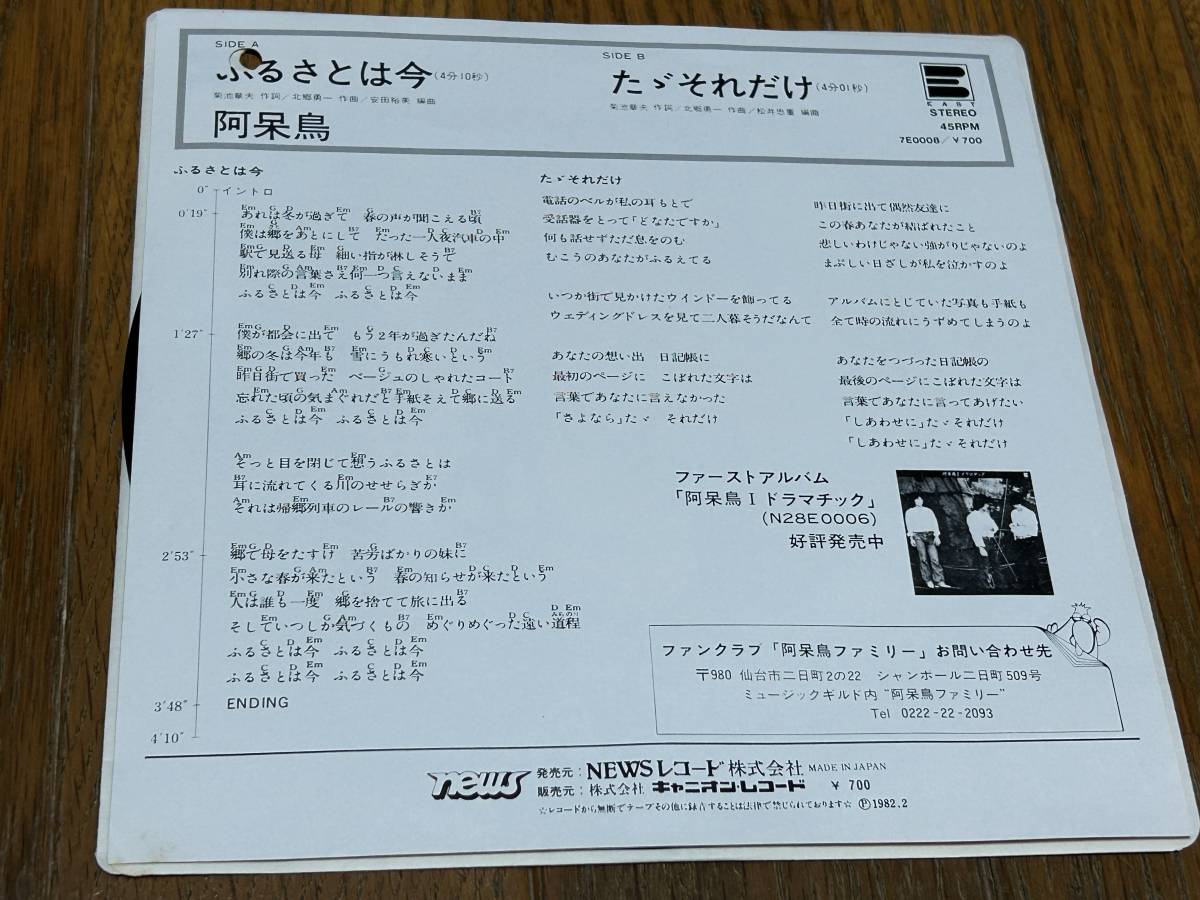 SIDE A
ふるさとは今(4分10秒)
菊池拳夫 作詞/北郷勇一 作曲/安田裕美 編曲
阿呆鳥
SIDE B
たゞそれだけ(4分01秒)
菊池拳夫 作詞/北郷勇一 作曲/松井忠重 編曲
EAST
STEREO
45RPM
7E0008/¥700
ふるさとは今
0″ イントロ
0′19″
あれは冬が過ぎて 春の声が聞こえる頃
僕は郷をあとにして たった一人夜汽車の中
駅で見送る母 細い指が淋しそうで
別れ際の言葉さえ何一つ言えないまま
ふるさとは今 ふるさとは今
1′27″
僕が都会に出て もう2年が過ぎたんだね
郷の冬は今年も 雪にうもれ寒いという
昨日街で買った ベージュのしゃれたコート
忘れた頃の気まぐれだと手紙そえて郷に送る
ふるさとは今 ふるさとは今
そっと目を閉じて想うふるさとは
耳に流れてくる川のせせらぎか
それは帰郷列車のレールの響きか
2′53″
郷で母をたすけ 苦労ばかりの妹に
小さな春が来たという 春の知らせが来たという
人は誰も一度 郷を捨てて旅に出る
そしていつしか気づくもの めぐりめぐった遠い道程
ふるさとは今 ふるさとは今
ふるさとは今 ふるさとは今
3′48″ ENDING
4′10″
たゞそれだけ
電話のベルが私の耳もとで
受話器をとって「どなたですか」
何も話せずただ息をのむ
むこうのあなたがふるえてる
いつか街で見かけたウインドーを飾ってる
ウェディングドレスを見て二人暮そうだなんて
あなたの想い出 日記帳に
最初のページに こぼれた文字は
言葉であなたに言えなかった
「さよなら」たゞ それだけ
昨日街に出て偶然友達に
この春あなたが結ばれたこと
悲しいわけじゃない強がりじゃないのよ
まぶしい日ざしが私を泣かすのよ
アルバムにとじていた写真も手紙も
全て時の流れにうずめてしまうのよ
あなたをつづった日記帳の
最後のページにこぼれた文字は
言葉であなたに言ってあげたい
「しあわせに」たゞそれだけ
「しあわせに」たゞそれだけ
ファーストアルバム
「阿呆鳥Iドラマチック」
(N28E0006)
好評発売中
阿呆鳥Iドラマチック
ファンクラブ「阿呆鳥ファミリー」お問い合わせ先
〒980 仙台市二日町2の22 シャンボール二日町509号
ミュージックギルド内“阿呆鳥ファミリー”
Tel 0222-22-2093
news
発売元:NEWSレコード株式会社 MADE IN JAPAN
販売元:株式会社 キャニオン・レコード ¥ 700
☆レコードから無断でテープその他に録音することは法律で禁じられております☆ Ⓟ1982.2